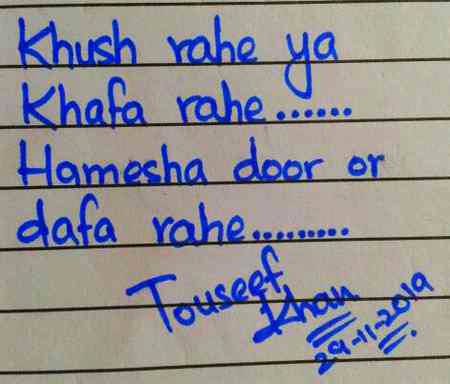 Khush rahe ya
Khafa rahe......
Hamesha door or
dafa rahe.........
Touseef
Khan
29-11-2019